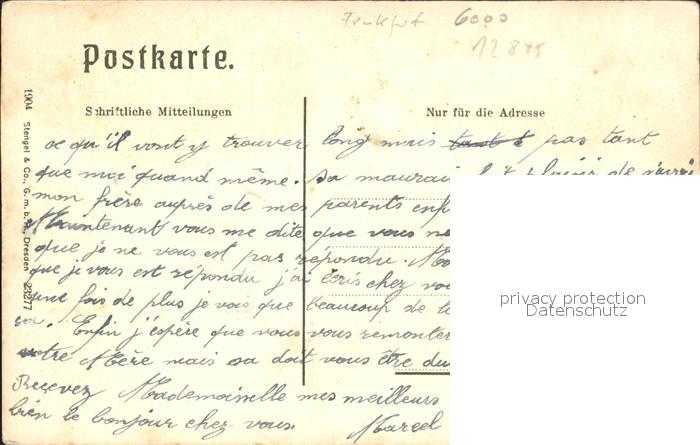 Frankfurt 6000
12845
Postkarte.
Schriftliche Mitteilungen
Nur für die Adresse
1904 Stengel & Co., G. m. b. H., Dresden 29277
ce qu'il vont y trouver long mais pas tant
que moi quand même. sa plaisir de
mon frère auprès de mes parents
Maintenant vous me dite que vous
que je ne vous est pas répondu.
que je vous est répondu j'ai écris chez
une fois de plus je vois que beaucoup de
sa. Enfin j'espère que vous vous
votre Mère mais sa doit vous être
Recevez Mademoiselle mes meilleurs
bien le bonjour chez vous.
Marcel
privacy protection
Datenschutz